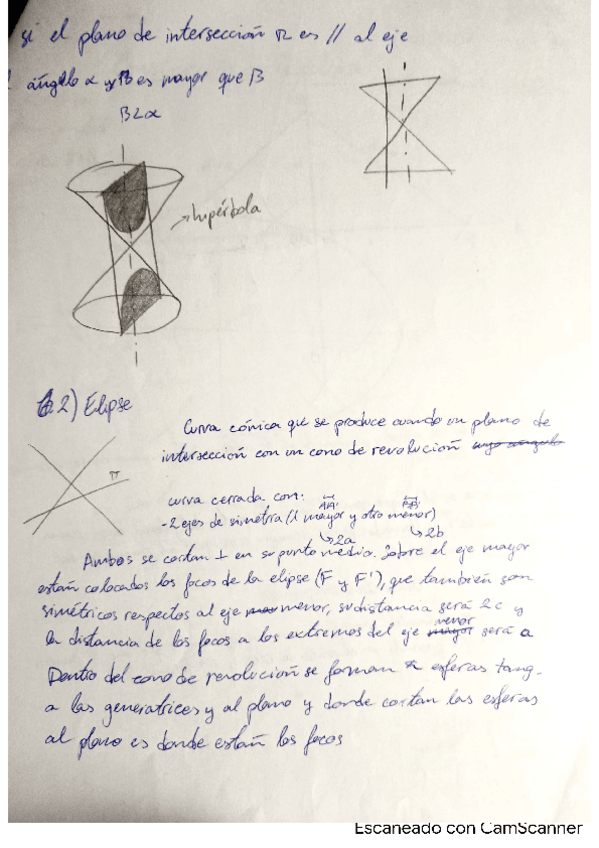 si el plano de intersección π es // al eje
ángulo α y β es mayor que β
β<α
→hipérbola
6.2) Elipse
Curva cónica que se produce cuando un plano de
intersección con un cono de revolución
π
curva cerrada con:
AA' BB'
-2 ejes de simetría (1 mayor y otro menor)
↳2a ↳2b
Ambos se cortan ⊥ en su punto medio. Sobre el eje mayor
están colocados los focos de la elipse (F y F'), que también son
simétricos respectos al eje menor, su distancia será 2c y
menor
la distancia de los focos a los extremos del eje mayor será a
Dentro del cono de revolución se forman esferas tang.
a las generatrices y al plano y donde cortan las esferas
al plano es donde están los focos
Escaneado con CamScanner